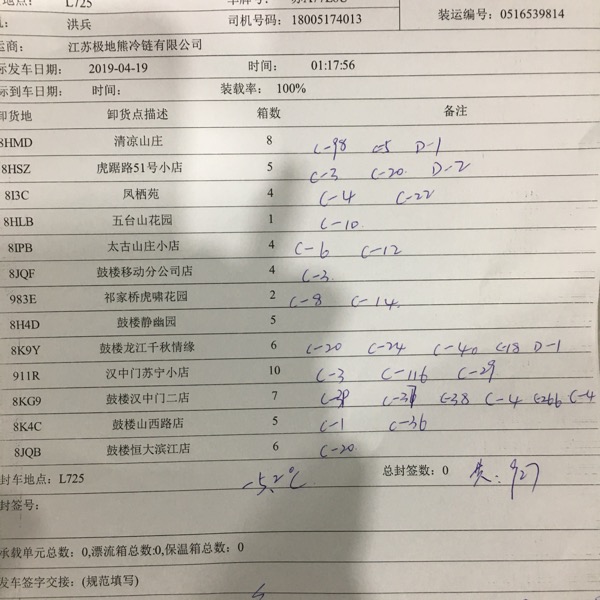 L725
洪兵 司机号码：18005174013 装运编号：0516539814
运商： 江苏极地熊冷链有限公司
标发车日期： 2019-04-19 时间： 01:17:56
标到车日期： 时间： 装载率： 100%
卸货地 卸货点描述 箱数 备注
8HMD 清凉山庄 8 C-98 C-5 D-1
8HSZ 虎踞路51号小店 5 C-3 C-20 D-2
8I3C 凤栖苑 4 C-4 C-22
8HLB 五台山花园 1 C-10
8IPB 太古山庄小店 4 C-6 C-12
8JQF 鼓楼移动分公司店 4 C-3
983E 祁家桥虎啸花园 2 C-8 C-14
8H4D 鼓楼静幽园 5
8K9Y 鼓楼龙江千秋情缘 6 C-20 C-24 C-40 C-18 D-1
911R 汉中门苏宁小店 10 C-3 C-116 C-29
8KG9 鼓楼汉中门二店 7 C-38 C-4 C-266 C-4
8K4C 鼓楼山西路店 5 C-1 C-36
8JQB 鼓楼恒大滨江店 6 C-20
封车地点：L725 -5.2℃ 总封签数：0 927
封签号：
承载单元总数：0,漂流箱总数:0,保温箱总数：0
发车签字交接：(规范填写)